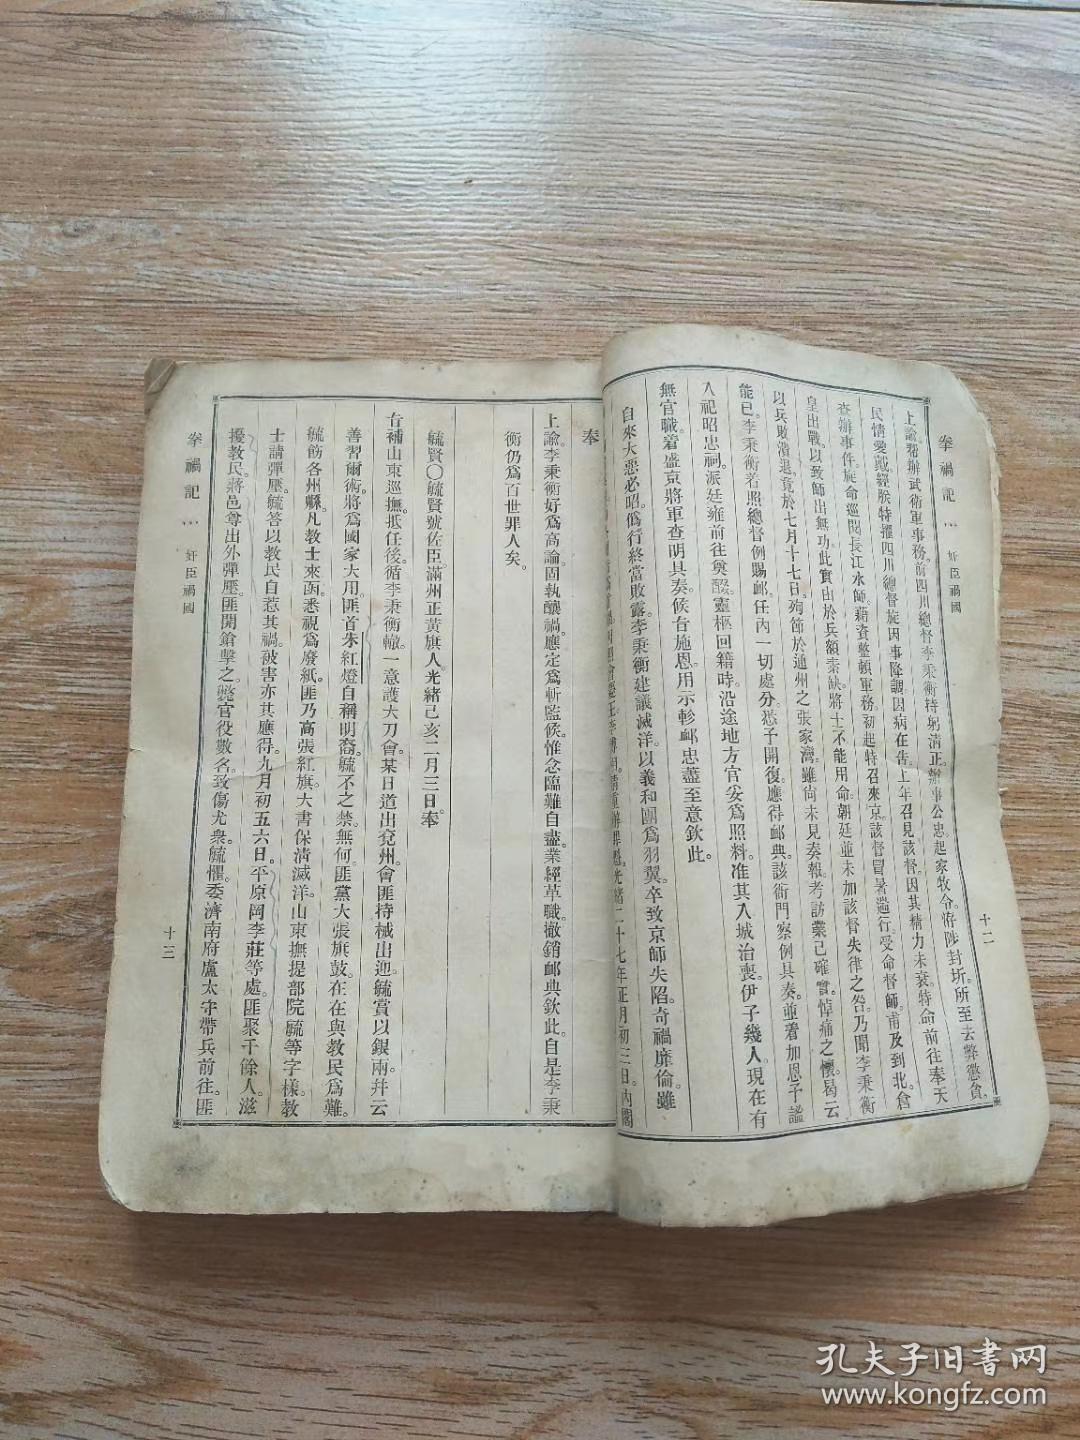 拳禍記 奸臣禍國 十二
上諭幫辦武衛軍事務前四川總督李秉衡持躬清正辦事公忠起家牧令洊陟封圻所至去弊懲貪。
民情愛戴經朕特擢四川總督旋因事降調因病在告上年召見該督因其精力未衰特命前往奉天
查辦事件旋命巡閱長江水師藉資整頓軍務初起特召來京該督冒暑遄行受命督師甫及到北倉
皇出戰以致師出無功此實出於兵額素缺將士不能用命朝廷並未加該督失律之咎乃聞李秉衡
以兵敗潰退竟於七月十七日殉節於通州之張家灣雖尚未見奏報考訪業已確實悼痛之懷曷云
能已李秉衡着照總督例賜卹任內一切處分悉予開復應得卹典該衙門察例具奏並着加恩予謚
入祀昭忠祠派廷雍前往奠醊靈柩回籍時沿途地方官妥爲照料准其入城治喪伊子幾人現在有
無官職着盛京將軍查明具奏候旨施恩用示軫卹忠藎至意欽此。
自來大惡必昭僞行終當敗露李秉衡建議滅洋以義和團爲羽翼卒致京師失陷奇禍靡倫雖
光緒二十七年正月初三日內閣
奉
上諭李秉衡好爲高論固執釀禍應定爲斬監候惟念臨難自盡業經革職撤銷卹典欽此自是李秉
衡仍爲百世罪人矣。
毓賢〇毓賢號佐臣滿州正黃旗人光緒己亥二月三日奉
旨補山東巡撫抵任後循李秉衡轍一意護大刀會某日道出兗州會匪持械出迎毓賞以銀兩幷云
善習爾術將爲國家大用匪首朱紅燈自稱明裔毓不之禁無何匪黨大張旗鼓在在與教民爲難。
毓飭各州縣凡教士來函悉視爲廢紙匪乃高張紅旗大書保清滅洋山東撫提部院毓等字樣教
士請彈壓毓答以教民自惹其禍被害亦其應得九月初五六日平原岡李莊等處匪聚千餘人滋
擾教民蔣邑尊出外彈壓匪開鎗擊之斃官役數名致傷尤衆毓懼委濟南府盧太守帶兵前往匪
拳禍記 奸臣禍國 十三
孔夫子旧書网
www.kongfz.com